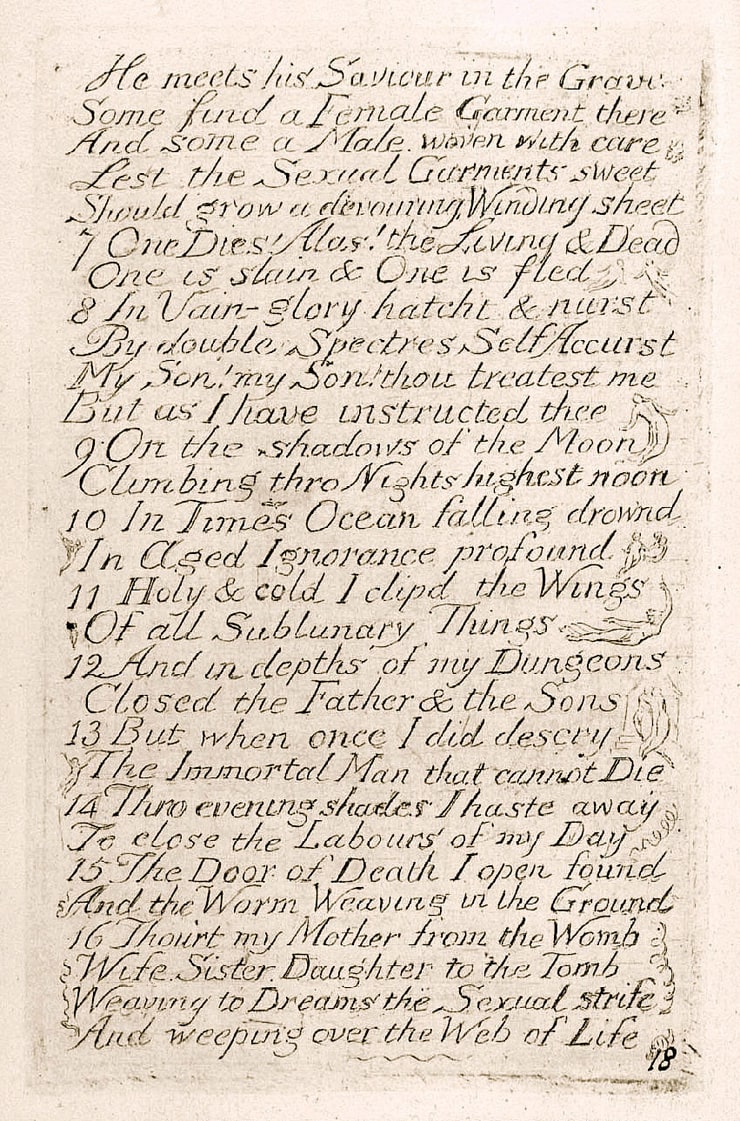 He meets his Saviour in the Grave
Some find a Female Garment there
And some a Male. woven with care
Lest the Sexual Garments sweet
Should grow a devouring Winding sheet
7 One Dies! Alas! the Living & Dead
One is slain & One is fled
8 In Vain-glory hatcht & nurst
By double Spectres Self Accurst
My Son! my Son! thou treatest me
But as I have instructed thee
9 On the shadows of the Moon
Climbing thro Nights highest noon
10 In Times Ocean falling drownd
In Aged Ignorance profound
11 Holy & cold I clipd the Wings
Of all Sublunary Things
12 And in depths of my Dungeons
Closed the Father & the Sons
13 But when once I did descry
The Immortal Man that cannot Die
14 Thro evening shades I haste away
To close the Labours of my Day
15 The Door of Death I open found
And the Worm Weaving in the Ground
16 Thou'rt my Mother from the Womb
Wife, Sister, Daughter to the Tomb
Weaving to Dreams the Sexual strife
And weeping over the Web of Life
18